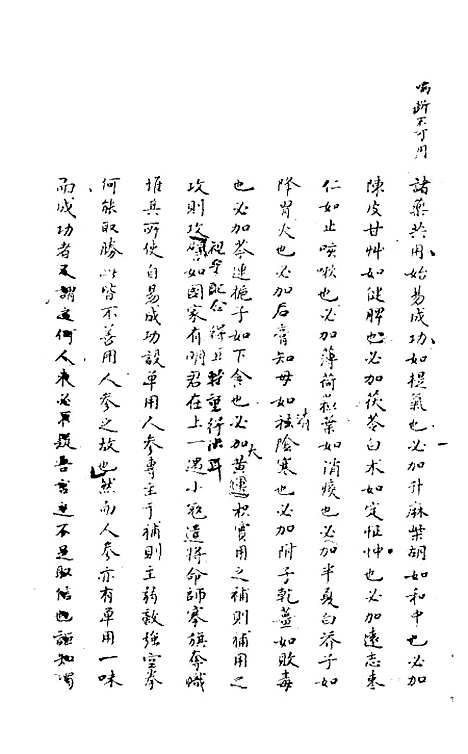 喘斷不可用
諸藥共用始易成功如提氣也必加升麻柴胡如和中也必加
陳皮甘艸如健脾也必加茯苓白术如定怔忡也必加遠志棗
仁如止咳嗽也必加薄荷蘇葉如消痰也必加半夏白芥子如
降胃火也必加石膏知母如祛陰寒也必加附子乾薑如敗毒
清
也必加芩連梔子如下食也必加大黄枳實用之補則補用之
攻則攻譬如國家有明君在上一遇小冠遣將命師搴旗奪幟
視乎配合得 輕重得 耳
惟其所使自易成功設單用人參專主于補則主弱敵強空拳
何能取勝此皆不善用人參之故也然而人參亦有單用一味
而成功者又謂之何人 必 吾言之不足取信也誰知獨